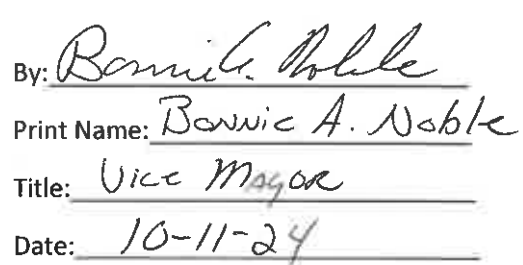 By: Bonnie A. Noble
Print Name: Bonnie A. Noble
Title: Vice Mayor
Date: 10-11-24